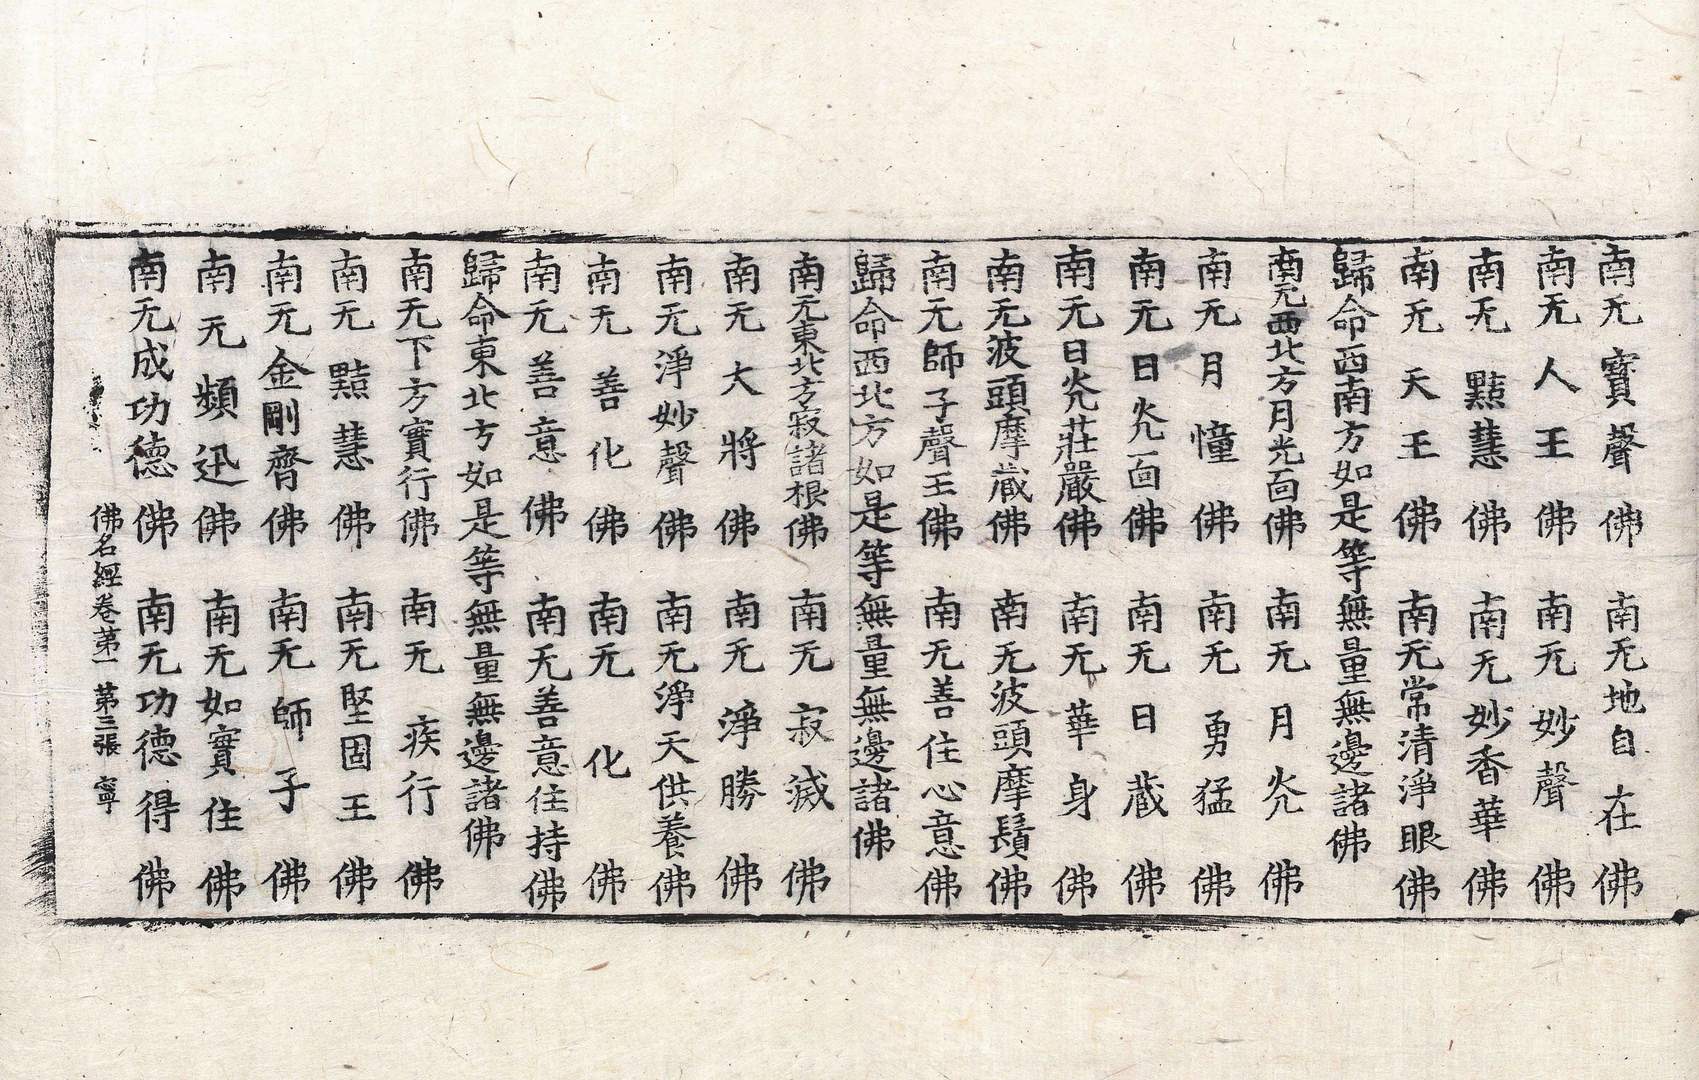 南无寶聲佛 南无地自在佛
南无人王佛 南无妙聲佛
南无黠慧佛 南无妙香華佛
南无天王佛 南无常清淨眼佛
歸命西南方如是等無量無邊諸佛
南无西北方月光面佛 南无月光佛
南无月幢佛 南无勇猛佛
南无日光面佛 南无日蔵佛
南无日光莊嚴佛 南无華身佛
南无波頭摩蔵佛 南无波頭摩鬚佛
南无師子聲王佛 南无善住心意佛
歸命西北方如是等無量無邊諸佛
南无東北方寂諸根佛 南无寂滅佛
南无大將佛 南无淨勝佛
南无淨妙聲佛 南无淨天供養佛
南无善化佛 南无化佛
南无善意佛 南无善意住持佛
歸命東北方如是等無量無邊諸佛
南无下方實行佛 南无疾行佛
南无黠慧佛 南无堅固王佛
南无金剛齊佛 南无師子佛
南无頻迅佛 南无如實住佛
南无成功德佛 南无功德得佛
佛名經卷第一 第三張 寧